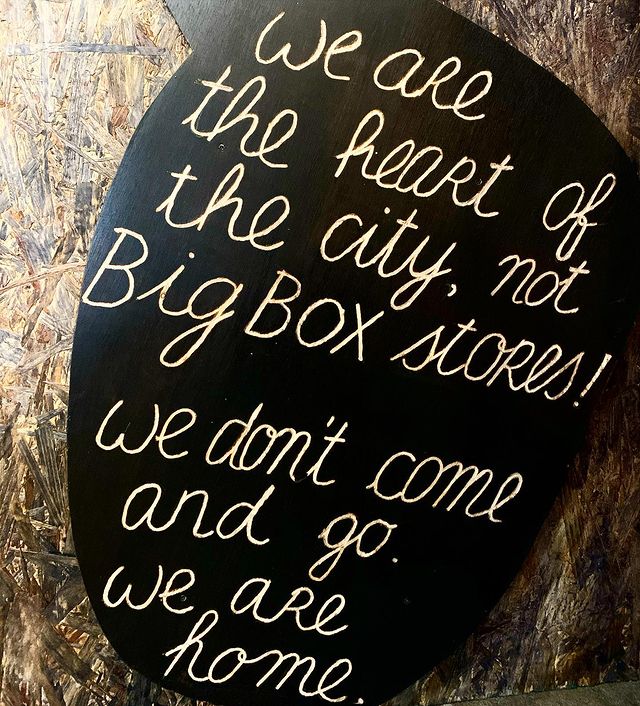 we are
the heart of
the city, not
Big Box stores!
we don't come
and go.
we are
home.